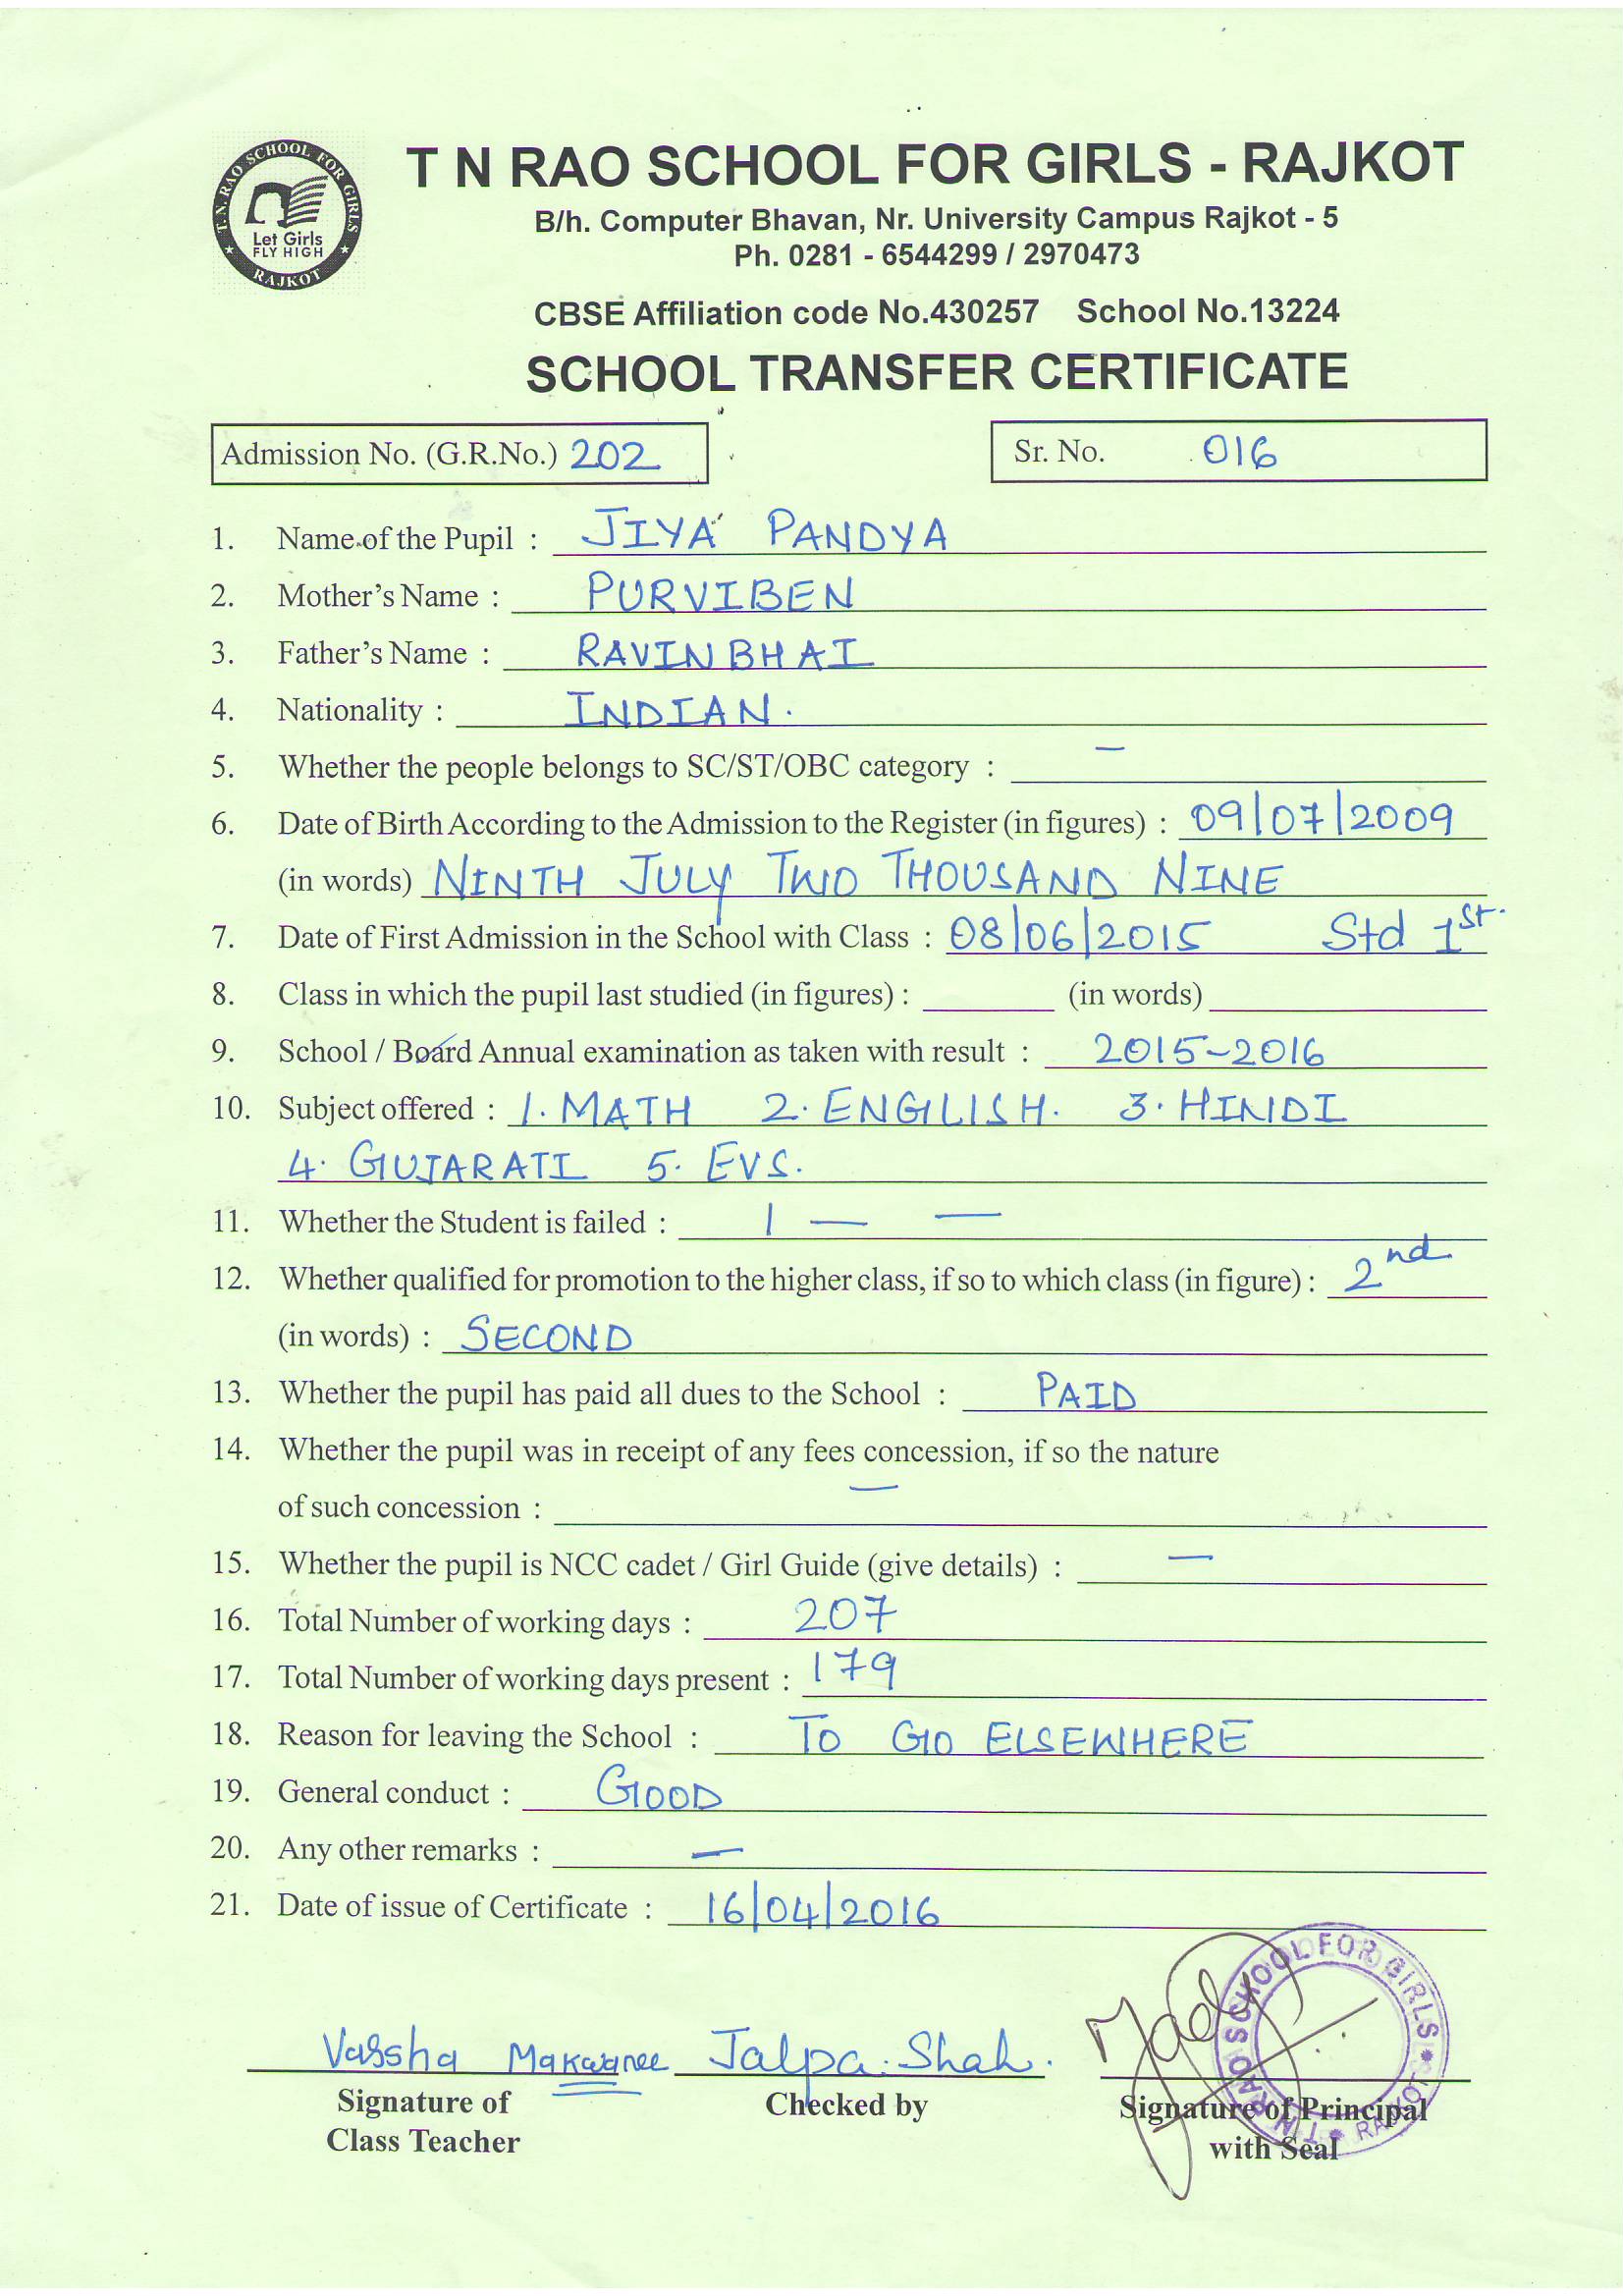 T. N. RAO SCHOOL FOR GIRLS
Let Girls
FLY HIGH
RAJKOT
T N RAO SCHOOL FOR GIRLS - RAJKOT
B/h. Computer Bhavan, Nr. University Campus Rajkot - 5
Ph. 0281 - 6544299 / 2970473
CBSE Affiliation code No.430257 School No.13224
SCHOOL TRANSFER CERTIFICATE
Admission No. (G.R.No.) 202 Sr. No. 016
1. Name of the Pupil : JIYA PANDYA
2. Mother's Name : PURVIBEN
3. Father's Name : RAVINBHAI
4. Nationality : INDIAN.
5. Whether the people belongs to SC/ST/OBC category : —
6. Date of Birth According to the Admission to the Register (in figures) : 09/07/2009
(in words) NINTH JULY TWO THOUSAND NINE
7. Date of First Admission in the School with Class : 08/06/2015 Std 1st.
8. Class in which the pupil last studied (in figures) : (in words)
9. School / Board Annual examination as taken with result : 2015-2016
10. Subject offered : 1. MATH 2. ENGLISH. 3. HINDI
4. GUJARATI 5. EVS.
11. Whether the Student is failed : | — —
12. Whether qualified for promotion to the higher class, if so to which class (in figure) : 2nd
(in words) : SECOND
13. Whether the pupil has paid all dues to the School : PAID
14. Whether the pupil was in receipt of any fees concession, if so the nature
of such concession : —
15. Whether the pupil is NCC cadet / Girl Guide (give details) : —
16. Total Number of working days : 207
17. Total Number of working days present : 179
18. Reason for leaving the School : TO GO ELSEWHERE
19. General conduct : GOOD
20. Any other remarks : —
21. Date of issue of Certificate : 16/04/2016
T N RAO SCHOOL FOR GIRLS * RAJKOT *
Varsha Makwanee Jalpa. Shah.
Signature of Checked by Signature of Principal
Class Teacher with Seal